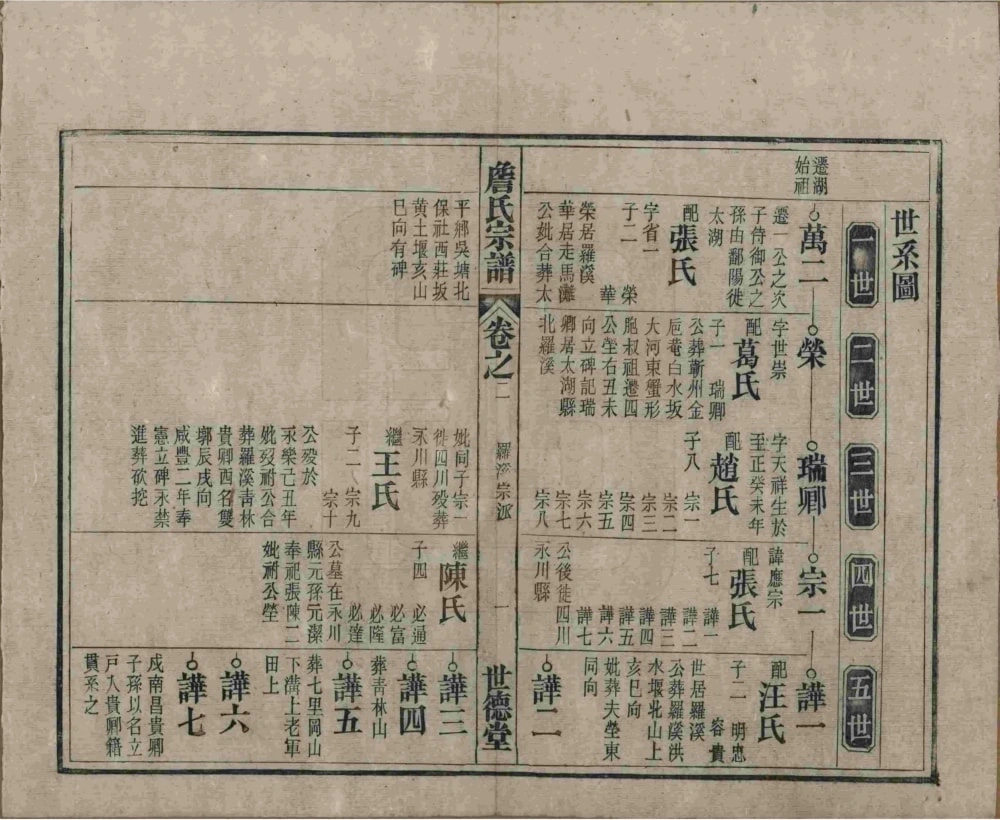 世系圖
一世
二世
三世
四世
五世
遷湖
始祖
萬二
遷一公之次
子侍御公之
孫由鄱陽徙
太湖
配
張氏
字省一
子二
榮
華
榮居羅溪
華居走馬灘
公妣合葬太
平鄉吳塘北
保社西莊坂
黃土堰亥山
巳向有碑
榮
字世崇
配
葛氏
子一
瑞卿
公葬蘄州金
卮菴白水坂
大河東蟹形
胞叔祖遷四
公塋右丑未
向立碑記瑞
卿居太湖縣
北羅溪
瑞卿
字天祥生於
至正癸未年
配
趙氏
子八
宗一
宗二
宗三
宗四
宗五
宗六
宗七
宗八
妣同子宗一
徙四川殁葬
永川縣
繼
王氏
子二
宗九
宗十
公殁於
永樂己丑年
妣殁祔公合
葬羅溪青林
貴卿西名雙
墎辰戌向
咸豐二年奉
憲立碑永禁
進葬砍挖
宗一
諱應宗
配
張氏
子七
譁一
譁二
譁三
譁四
譁五
譁六
譁七
公後徙四川
永川縣
繼
陳氏
子四
必通
必富
必隆
必達
公墓在永川
縣元孫元潔
奉祀張陳二
妣祔公塋
譁一
配
汪氏
子二
明忠
容貴
世居羅溪
公葬羅溪洪
水堰北山上
亥巳向
妣葬夫塋東
同向
譁二
譁三
譁四
葬青林山
譁五
葬七里岡山
下溝上老軍
田上
譁六
譁七
戍南昌貴卿
子孫以名立
戸入貴卿籍
貫系之
詹氏宗譜
卷之二
羅溪宗派
一
世德堂